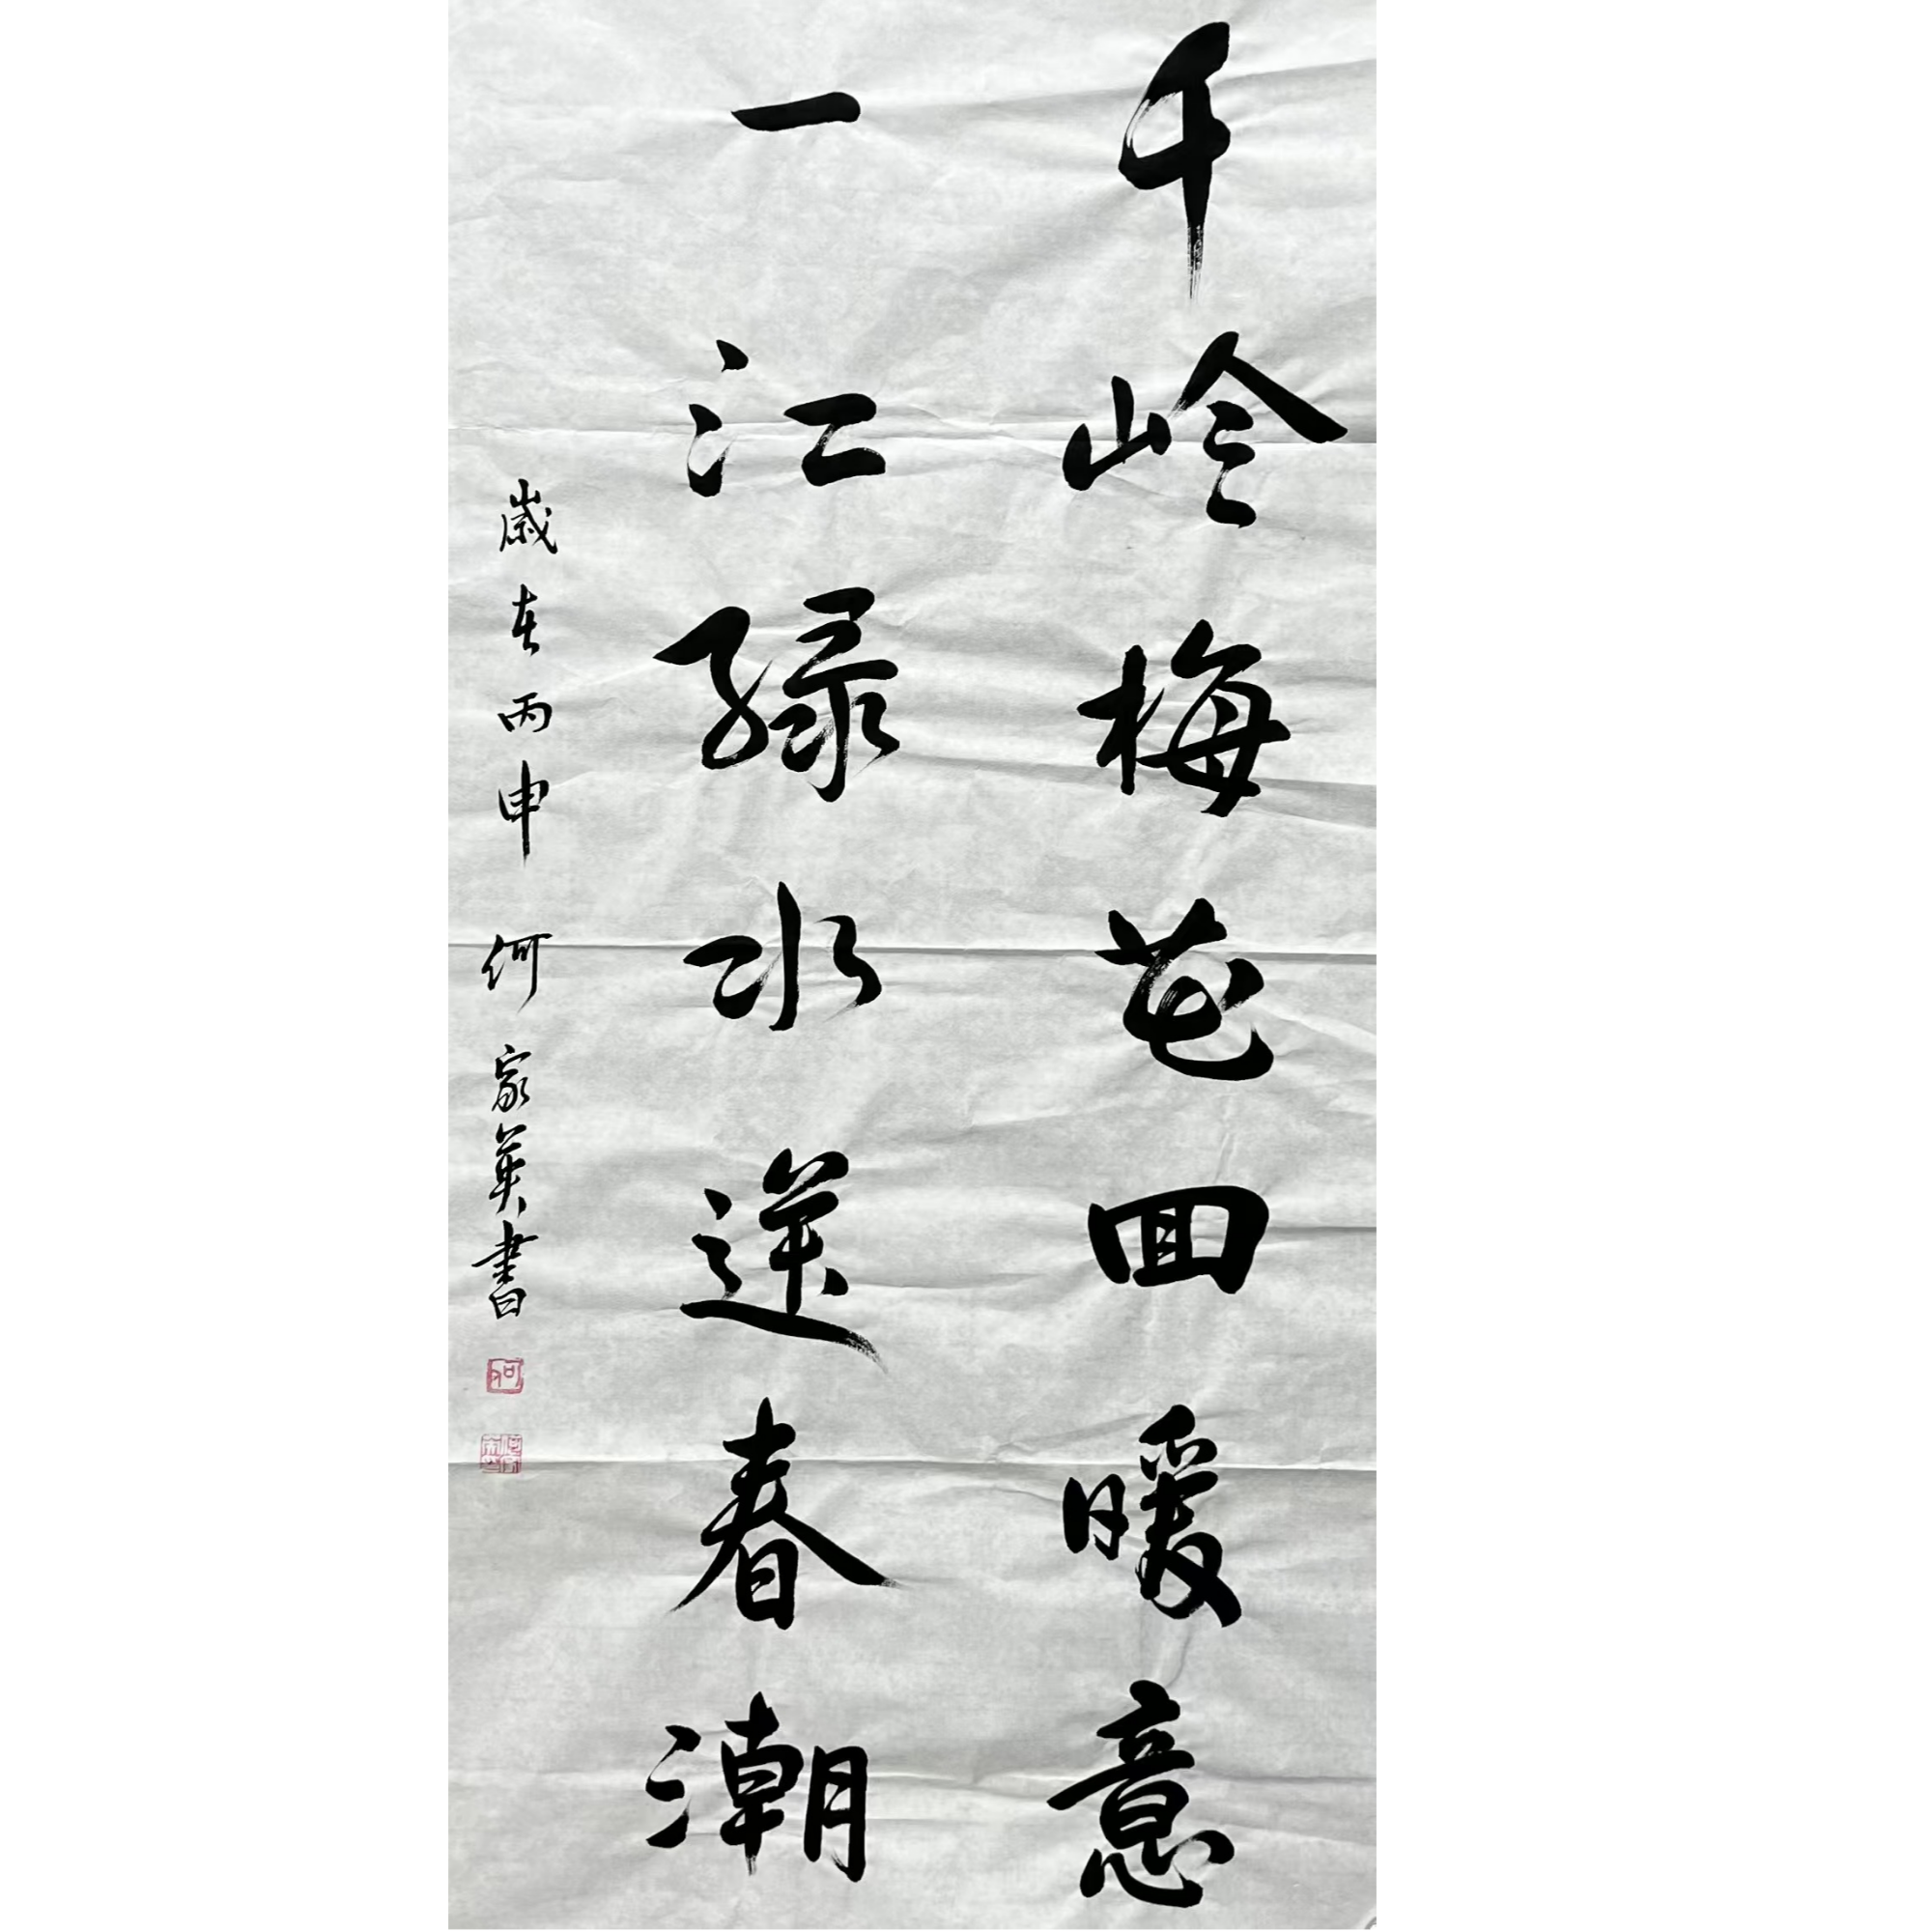 千岭梅花回暖意
一江绿水送春潮
歲在丙申 何家英書